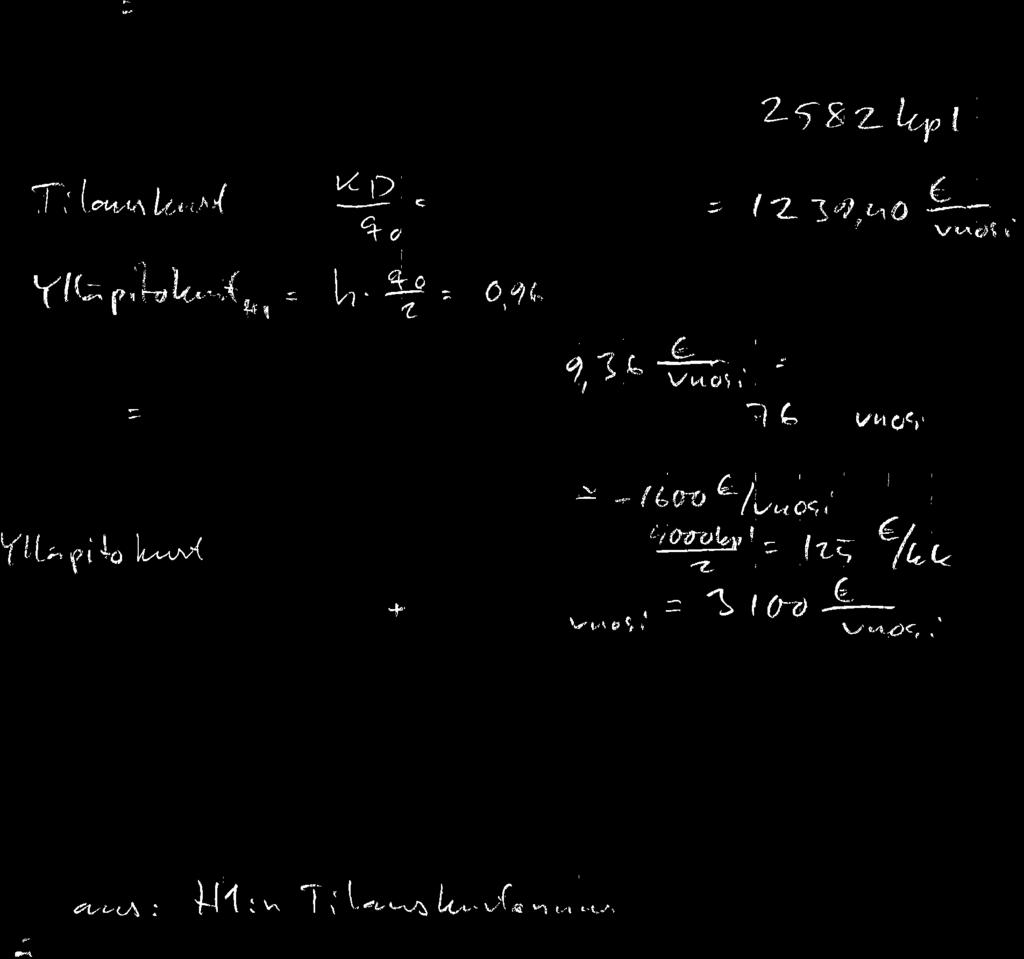 2582 kpl
Tilauskust KD/q₀ = = 1239,40 €/vuosi
Ylläpitokust_H1 = h · q₀/2 = 0,96
9,36 €/vuosi =
= 76 vuosi
≈ -1600 €/vuosi
Ylläpitokust 4000kpl/2 = 125 €/kk
+ vuosi = 3100 €/vuosi
H1:n Tilauskustannus